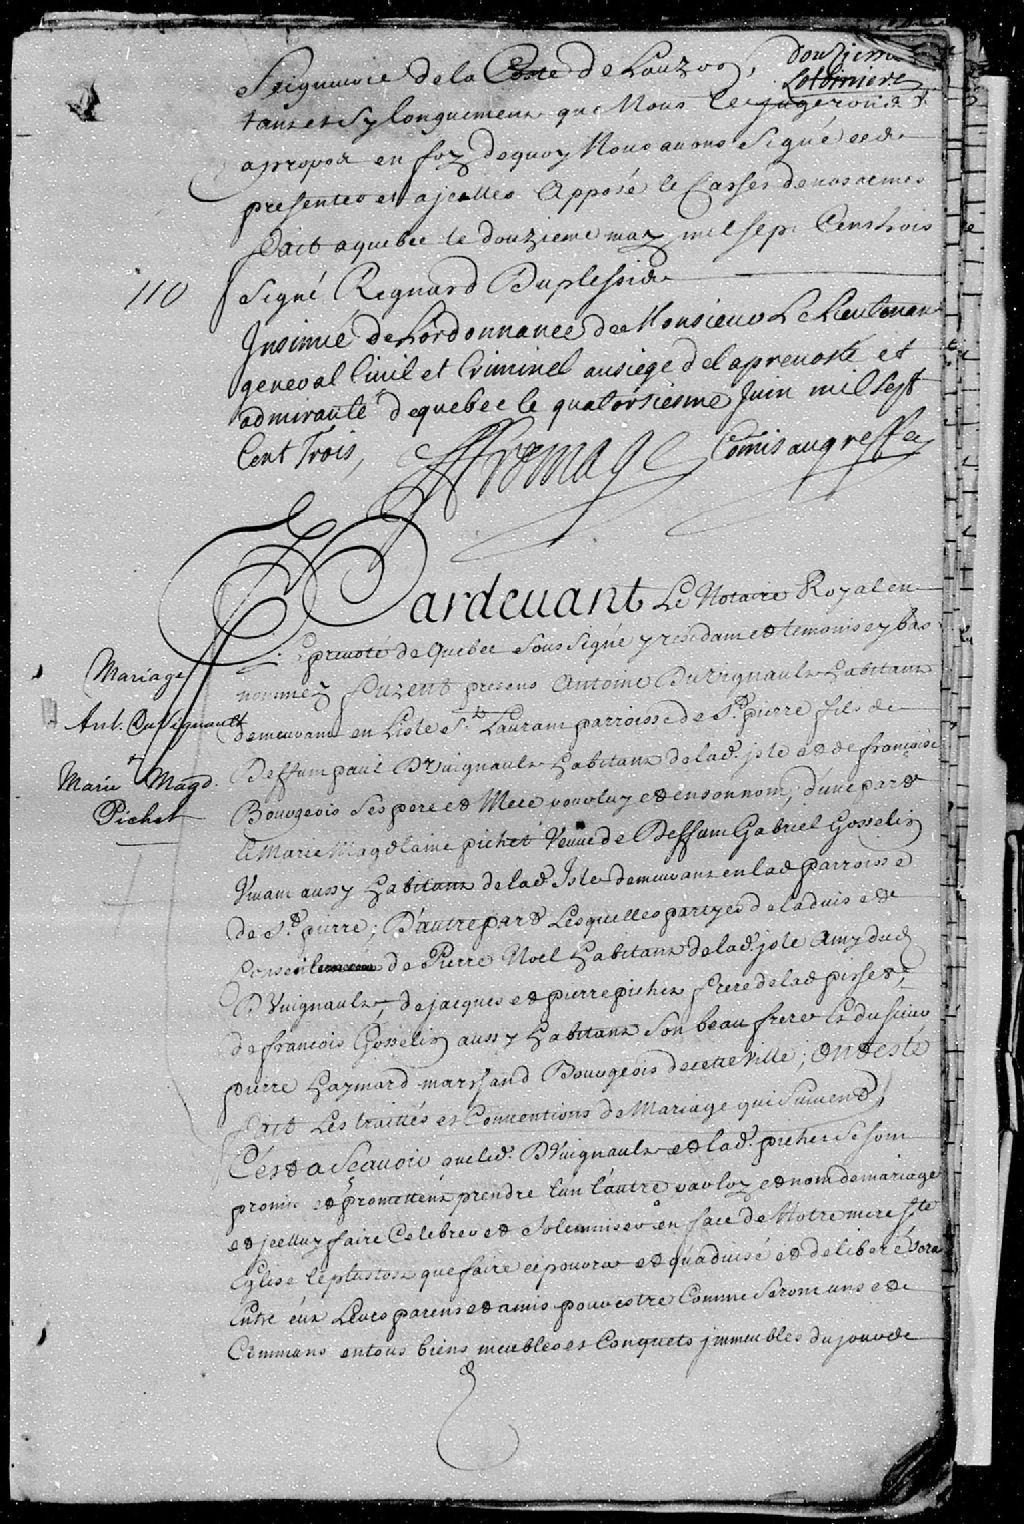 Douziesme
Lotbiniere
Seigneurie de la Coste de Lauzon,
tant et sy longuement que Nous le jugerons a
apropos en foy dequoy Nous avons Signé cesd.
presentes et ajcelles Apposé le Casset denos armes
fait aquebec le douzieme may mil sept Cens trois
Signé Regnard Duplessis
110
Insinué de Lordonnance de Monsieur Le Lieutenan
general Civil et Criminel au siege de la prevosté et
admirauté de quebec le quatorsiesme Juin mil sept
Cent Trois,
Fromage Comis au greffe
Pardevant Le Notaire Royal en
prevoté de Quebec Sous Signé y residant et temoins ey bas
nommez furent presens Antoine Duvignault habitant
demeurant en Lisle St. Laurans parroisse de St. pierre fils de
Deffunt paul Duvignault habitant de lad. isle et de françoise
Bourgeois Ses pere et Mere pour luy et en son nom, d'une part
Mariage
Ant. Duvignault
et
Marie Magd.
Pichet
Et Marie Magdelaine pichet Veuve de Deffunt Gabriel Gosselin
Vivant aussy habitant de lad. Isle demeurant en lad. parroisse
de St. pierre; D'autre part Lesquelles partyes de l'advis et
Conseil de Pierre Noel habitant de lad. jsle Amy dud.
Duvignault, de jacques et pierre pichet frere de lad. pichet,
de francois Gosselin aussy habitant Son beau frere Et du Sieur
pierre haymard marchand Bourgeois de cette Ville; Ont esté
fait Les traittés et Conventions de Mariage qui Suivent,
C'est a Scavoir que led. Duvignault et lad. pichet Se sont
promis et promettent prendre l'un l'autre par loy et nom de mariage
et jcelluy faire Celebrer et Solemniser en face de Nôtre mere ste.
Eglise le plustost que faire ce poura et qu'advisé et deliberé sera
Entre eux Leurs parens et amis pour estre Comme Seront uns et
Communs en tous biens meubles et Conquets jmmeubles du jour de